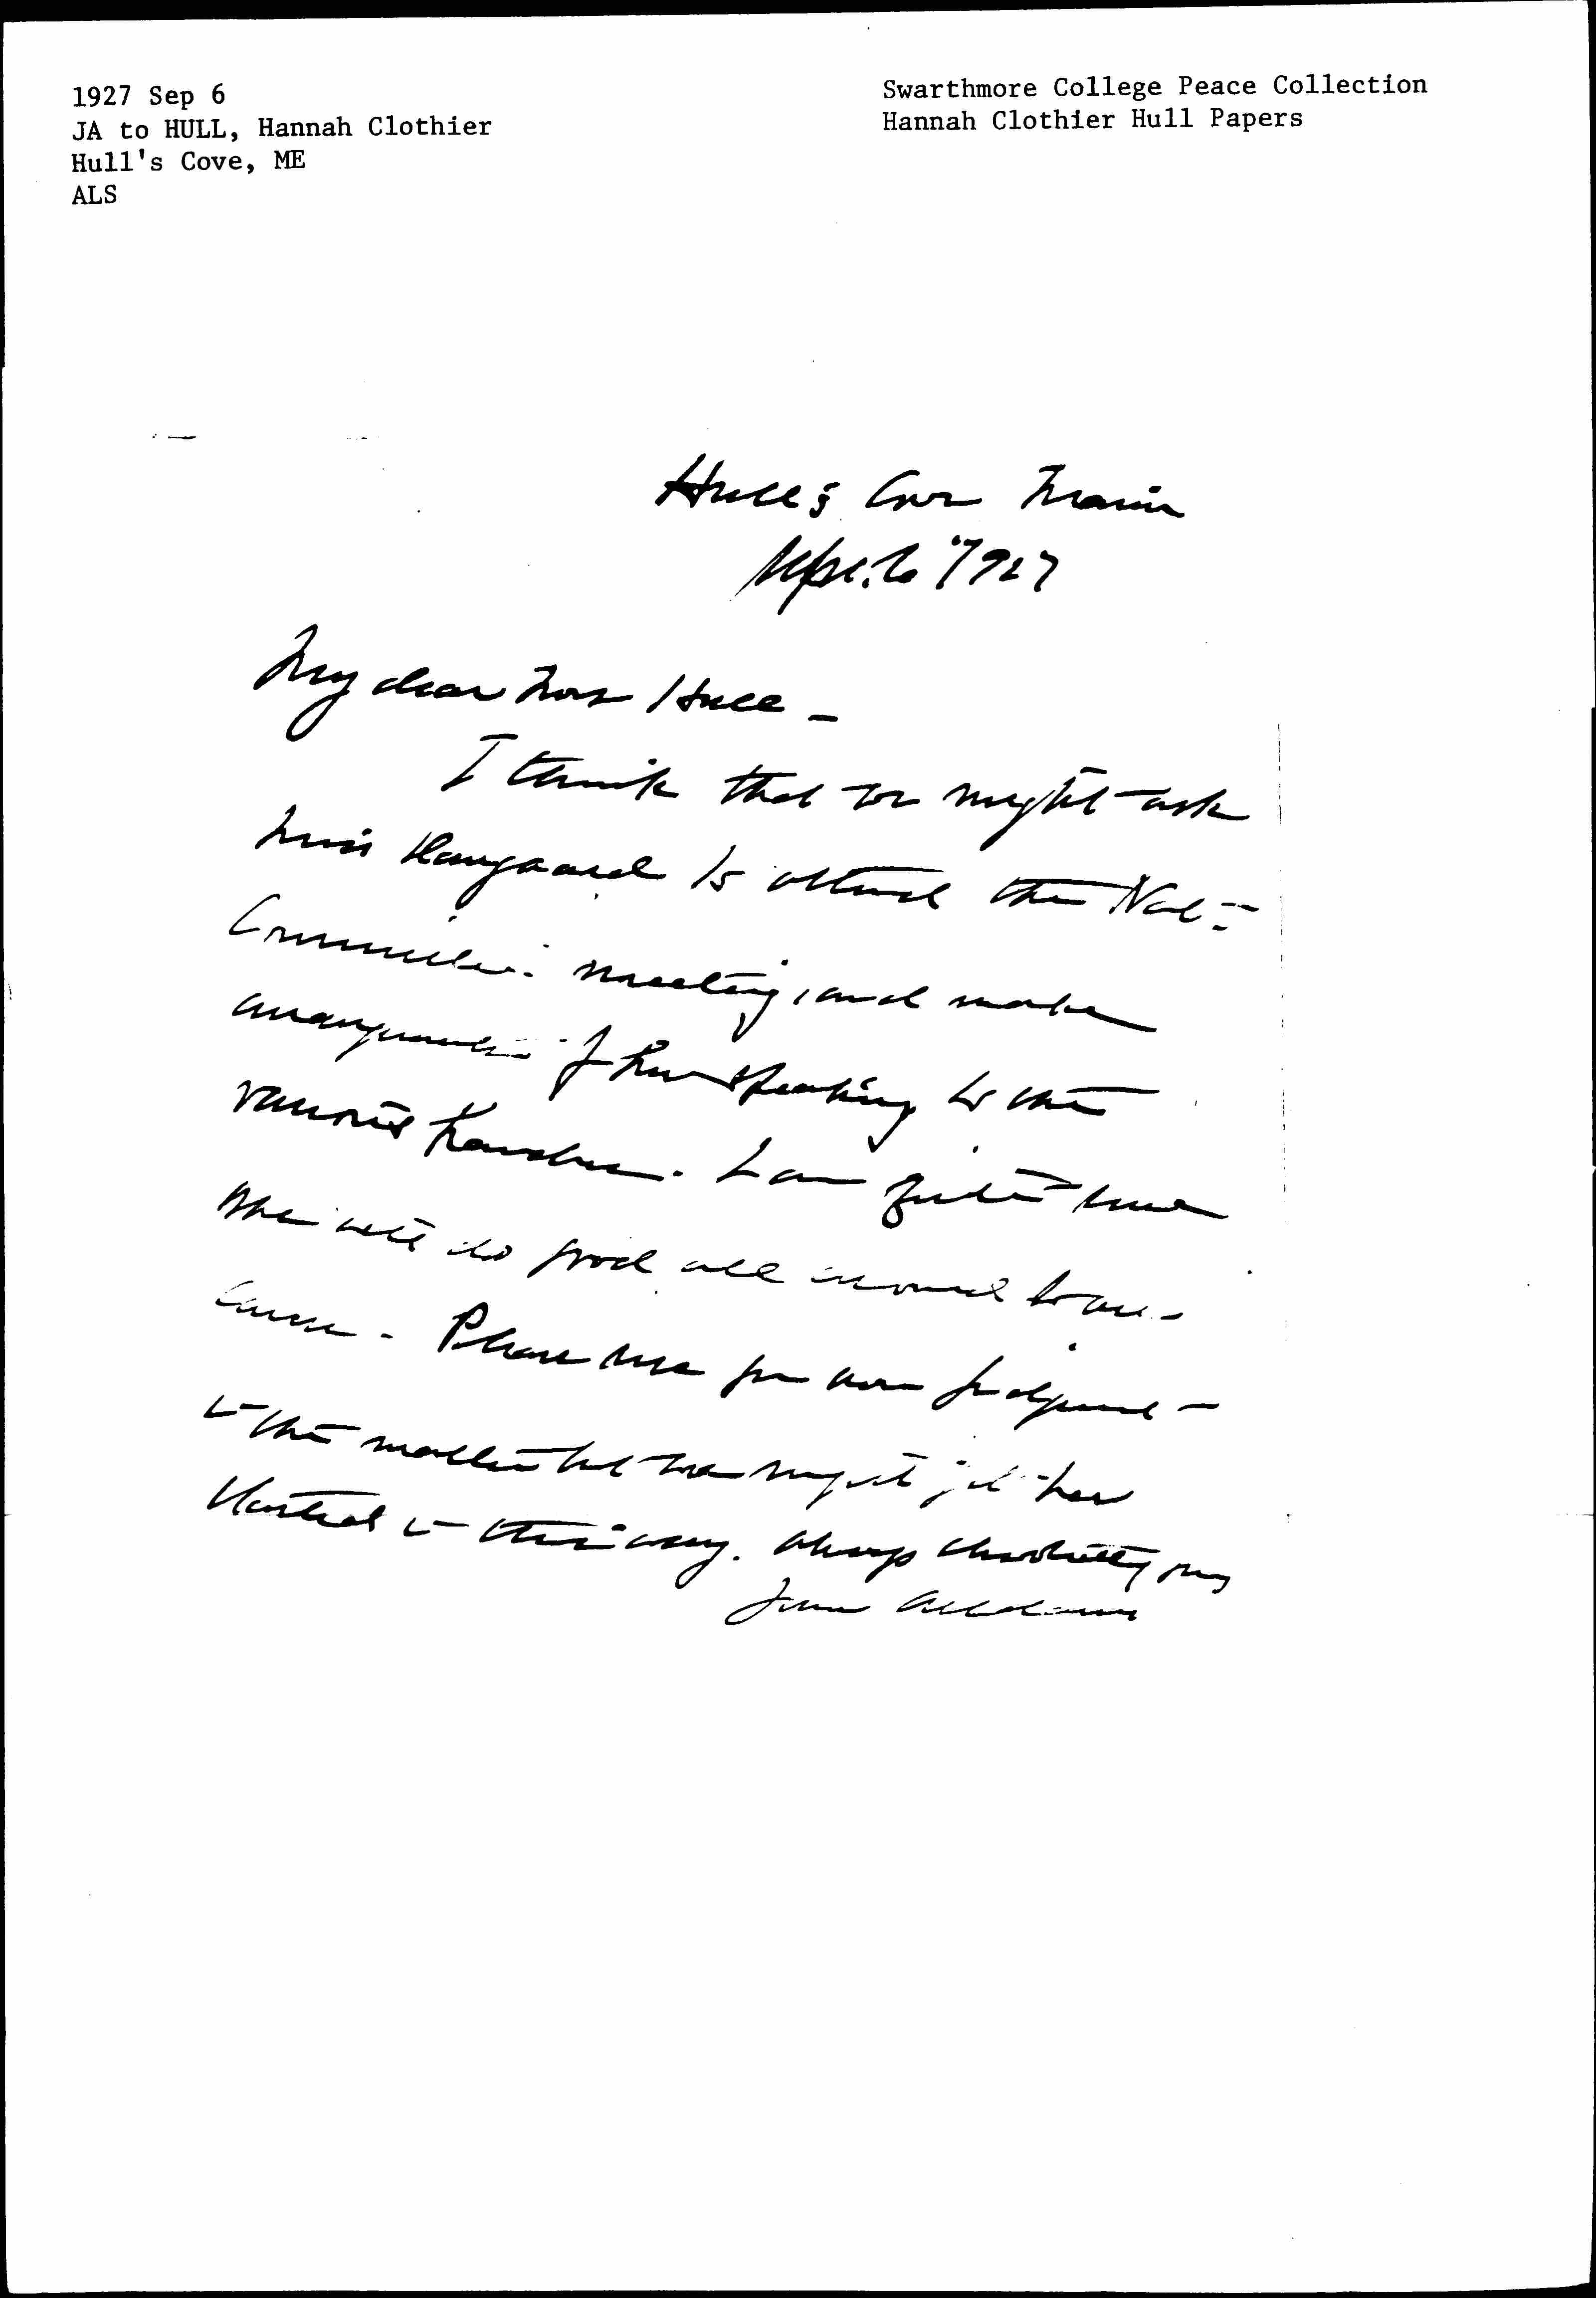 1927 Sep 6
JA to HULL, Hannah Clothier
Hull's Cove, ME
ALS
Swarthmore College Peace Collection
Hannah Clothier Hull Papers
Hull's Cove Maine
Sept. 6" 1927
My dear Mrs Hull –
I think that we might ask
Miss to attend the Nat'l
Committee meeting, and make
arrangements of her speaking to the
various branches. I am quite sure
she will do good all around to our
cause. Please use your own judgment –
in the matter but we might get her
started in this way. Always devotedly yours
Jane Addams